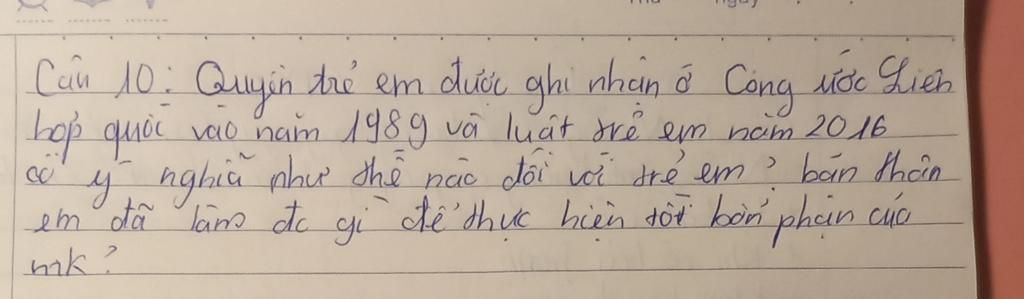 Câu 10: Quyền trẻ em được ghi nhận ở Công ước Liên
hợp quốc vào năm 1989 và luật trẻ em năm 2016
có ý nghĩa như thế nào đối với trẻ em? bản thân
em đã làm đc gì để thực hiện tốt bổn phận của
mk?